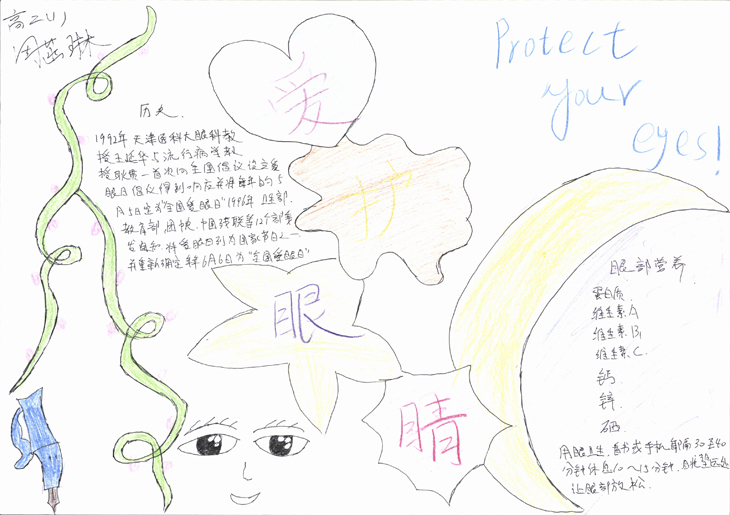 高二(1)
Protect
your
eyes!
爱
护
眼
睛
历史
1992年天津医科大眼科教
授王延华与流行病学教
授耿贯一首次向全国倡议设立爱
眼日倡议得到响应并将每年的5
月5日定为"全国爱眼日"1996年卫生部
教育部团中央中国残联等12个部委
发出通知将爱眼日列为国家节日之一
并重新确定每年6月6日为"全国爱眼日"
眼部营养
蛋白质
维生素A
维生素B1
维生素C
钙
锌
硒
用眼卫生,看书或手机每隔30至40
分钟休息10~15分钟,
让眼部放松.